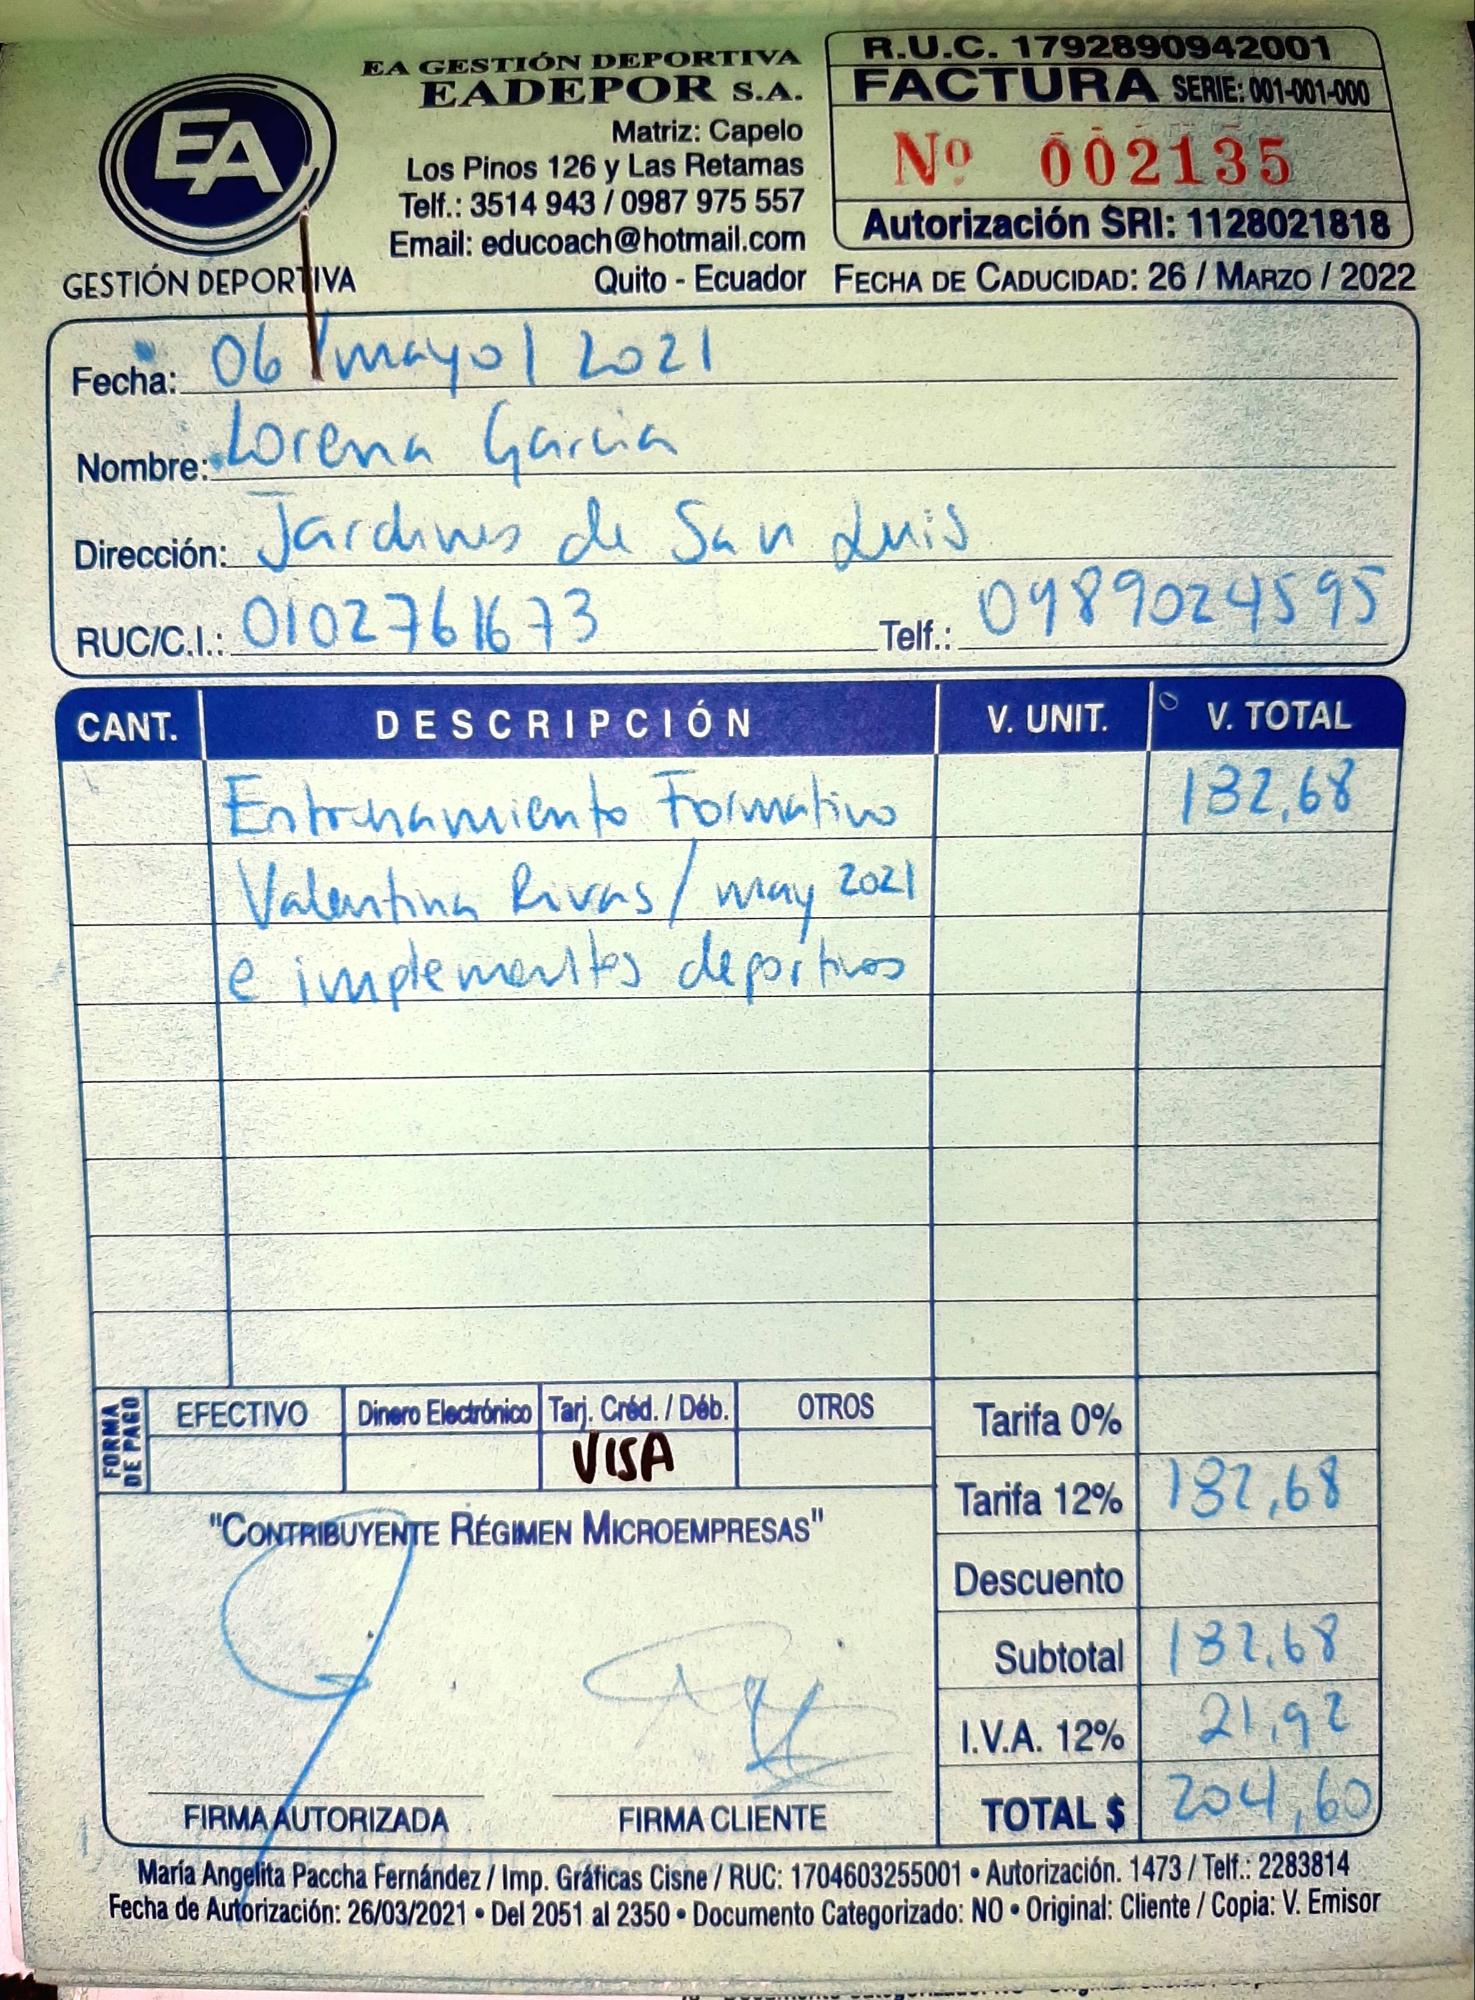 EA GESTIÓN DEPORTIVA
EADEPOR S.A.
Matriz: Capelo
Los Pinos 126 y Las Retamas
Telf.: 3514 943 / 0987 975 557
Email: educoach@hotmail.com
Quito - Ecuador
EA
GESTIÓN DEPORTIVA
R.U.C. 1792890942001
FACTURA SERIE: 001-001-000
Nº 002135
Autorización SRI: 1128021818
FECHA DE CADUCIDAD: 26 / MARZO / 2022
Fecha: 06/mayo/2021
Nombre: Lorena Garcia
Dirección: Jardines de San Luis
RUC/C.I.: 0102761673 Telf.: 0989024595
CANT. DESCRIPCIÓN V. UNIT. V. TOTAL
Entrenamiento Formativo 182,68
Valentina Rivas / may 2021
e implementos deportivos
FORMA DE PAGO EFECTIVO Dinero Electrónico Tarj. Créd. / Déb. OTROS
VISA
Tarifa 0%
Tarifa 12% 182,68
Descuento
Subtotal 182,68
I.V.A. 12% 21,92
TOTAL $ 204,60
"CONTRIBUYENTE RÉGIMEN MICROEMPRESAS"
FIRMA AUTORIZADA FIRMA CLIENTE
María Angelita Paccha Fernández / Imp. Gráficas Cisne / RUC: 1704603255001 • Autorización. 1473 / Telf.: 2283814
Fecha de Autorización: 26/03/2021 • Del 2051 al 2350 • Documento Categorizado: NO • Original: Cliente / Copia: V. Emisor